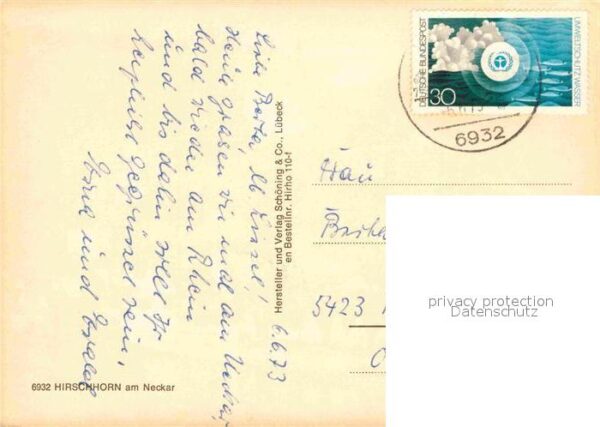 Liebe Berta, lb. Zenzel!
Heute grasen wir mal am Neckar
bald wieder am Rhein
und bis dahin sollt Ihr
herzlichst gegrüsset sein,
und
6.6.73
Hersteller und Verlag Schöning & Co., Lübeck
en Bestellnr. Hirho 110-f
6932 HIRSCHHORN am Neckar
DEUTSCHE BUNDESPOST
30
UMWELTSCHUTZ WASSER
6932
Frau
Berta
5423
privacy protection
Datenschutz